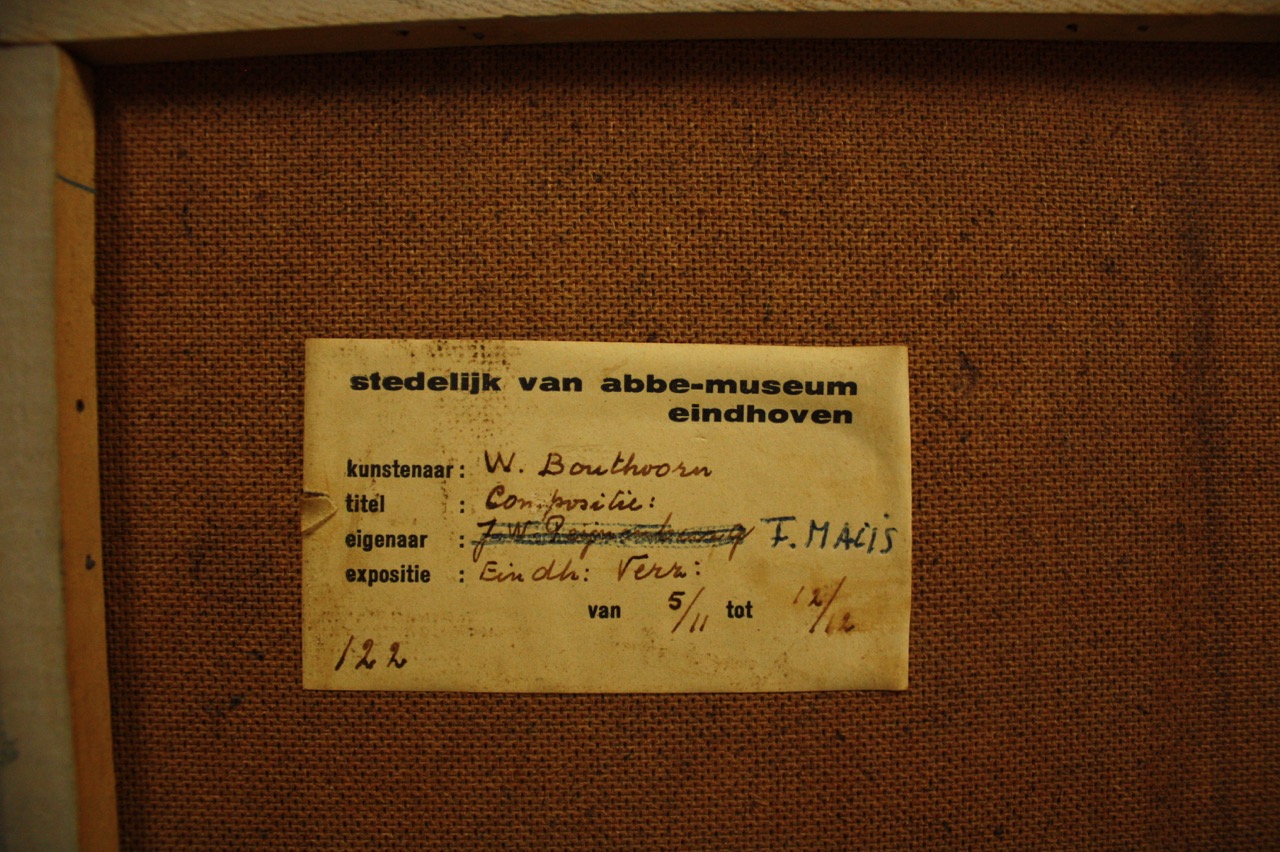 stedelijk van abbe-museum
eindhoven
kunstenaar : W. Bouthoorn
titel : Compositie:
eigenaar : J. W. F. MACIS
expositie : Eindh: Verz:
van 5/11 tot 12/12
122